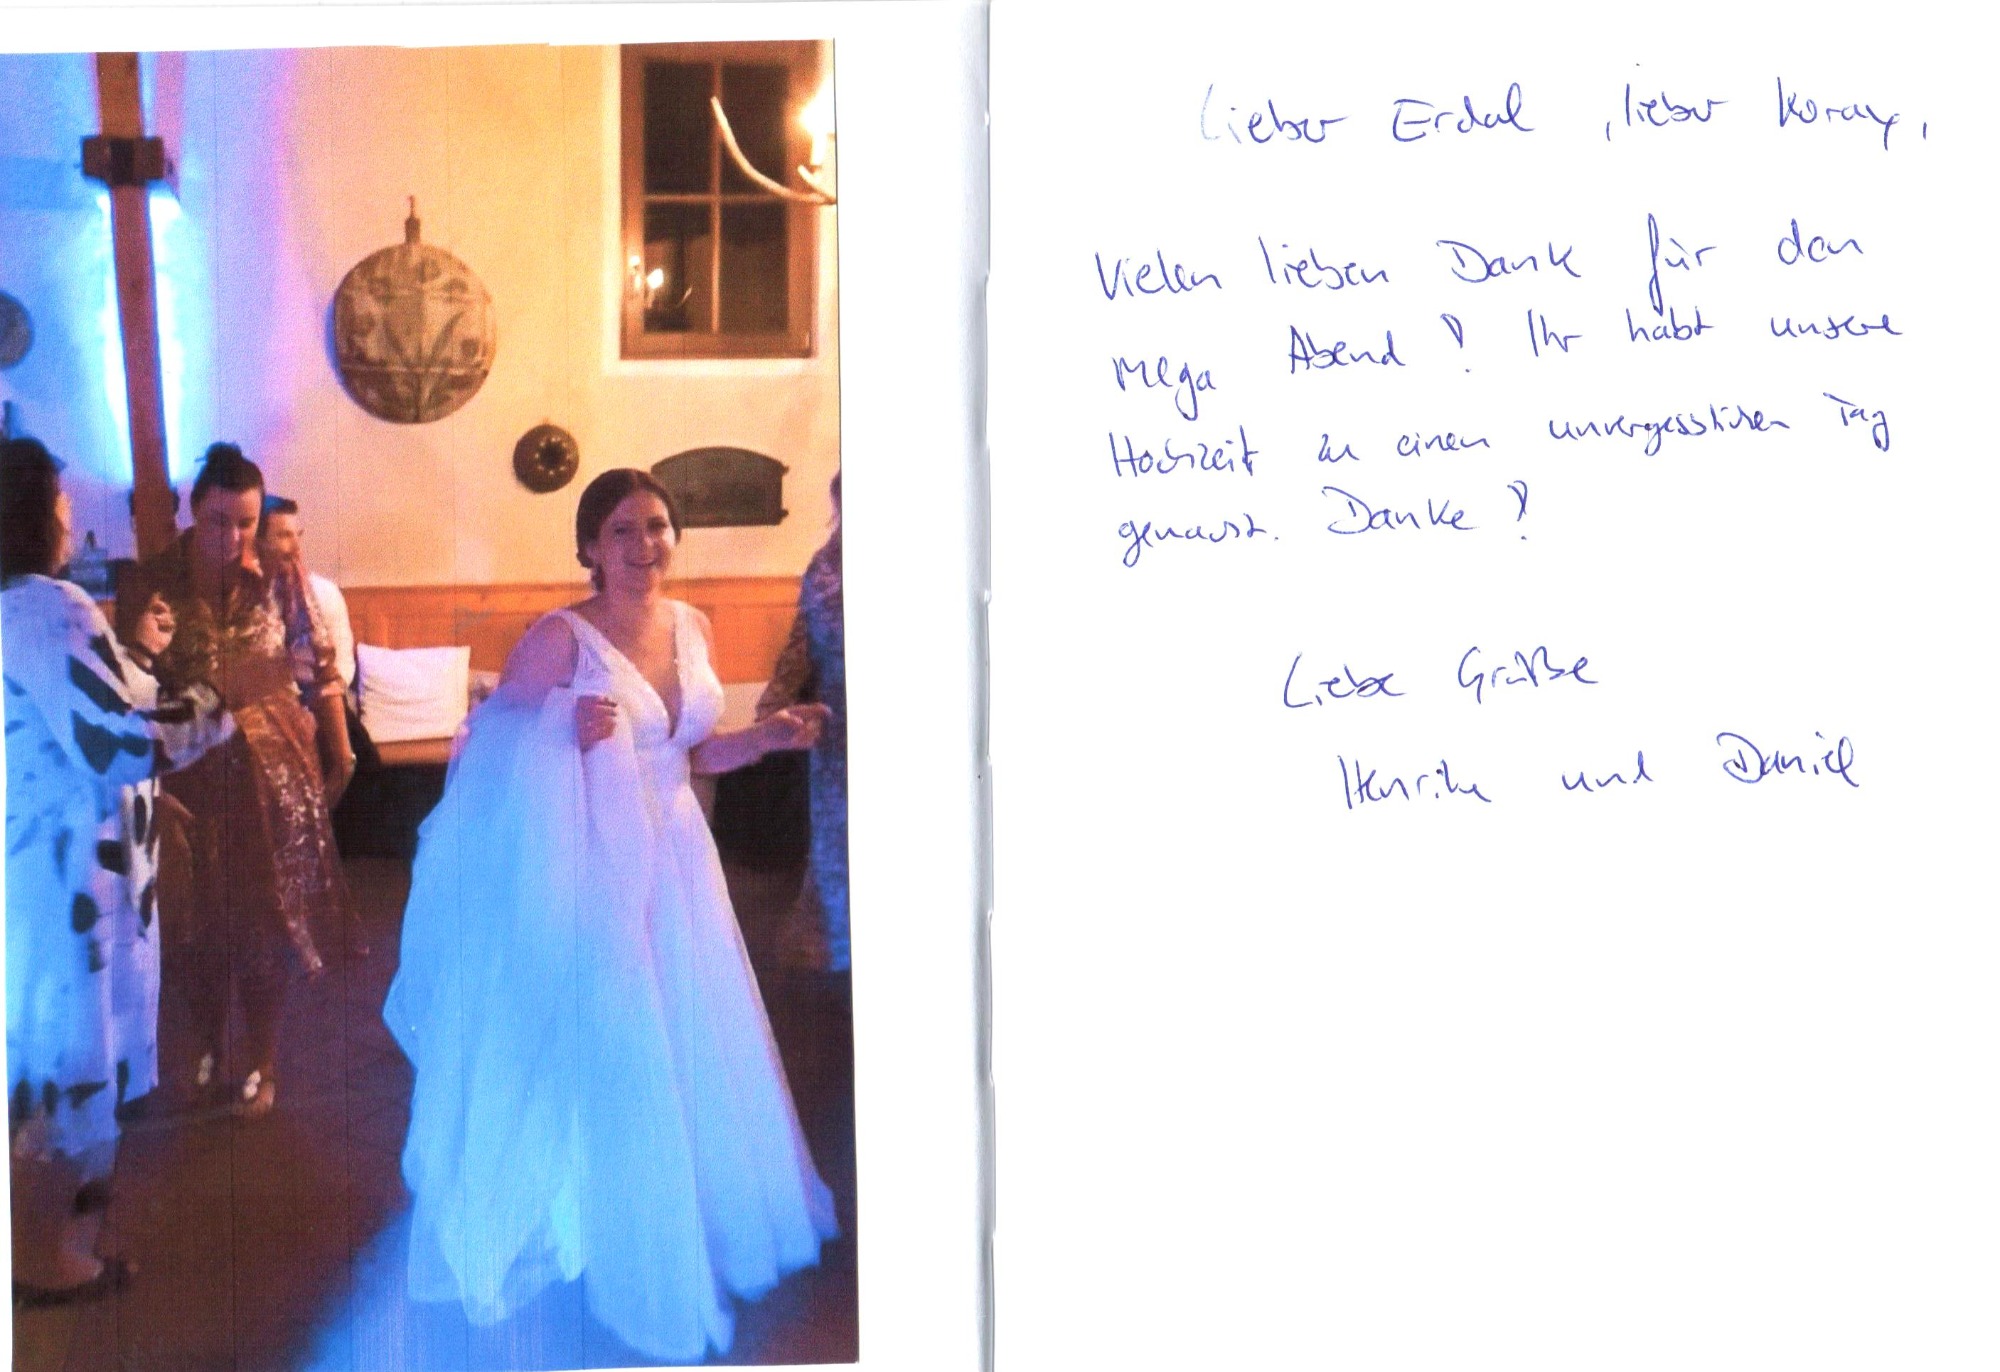 Lieber Erdal, lieber Koray,
Vielen lieben Dank für den
mega Abend! Ihr habt unsere
Hochzeit zu einen unvergesslichen Tag
gemacht. Danke!
Liebe Grüße
Henrike und Daniel